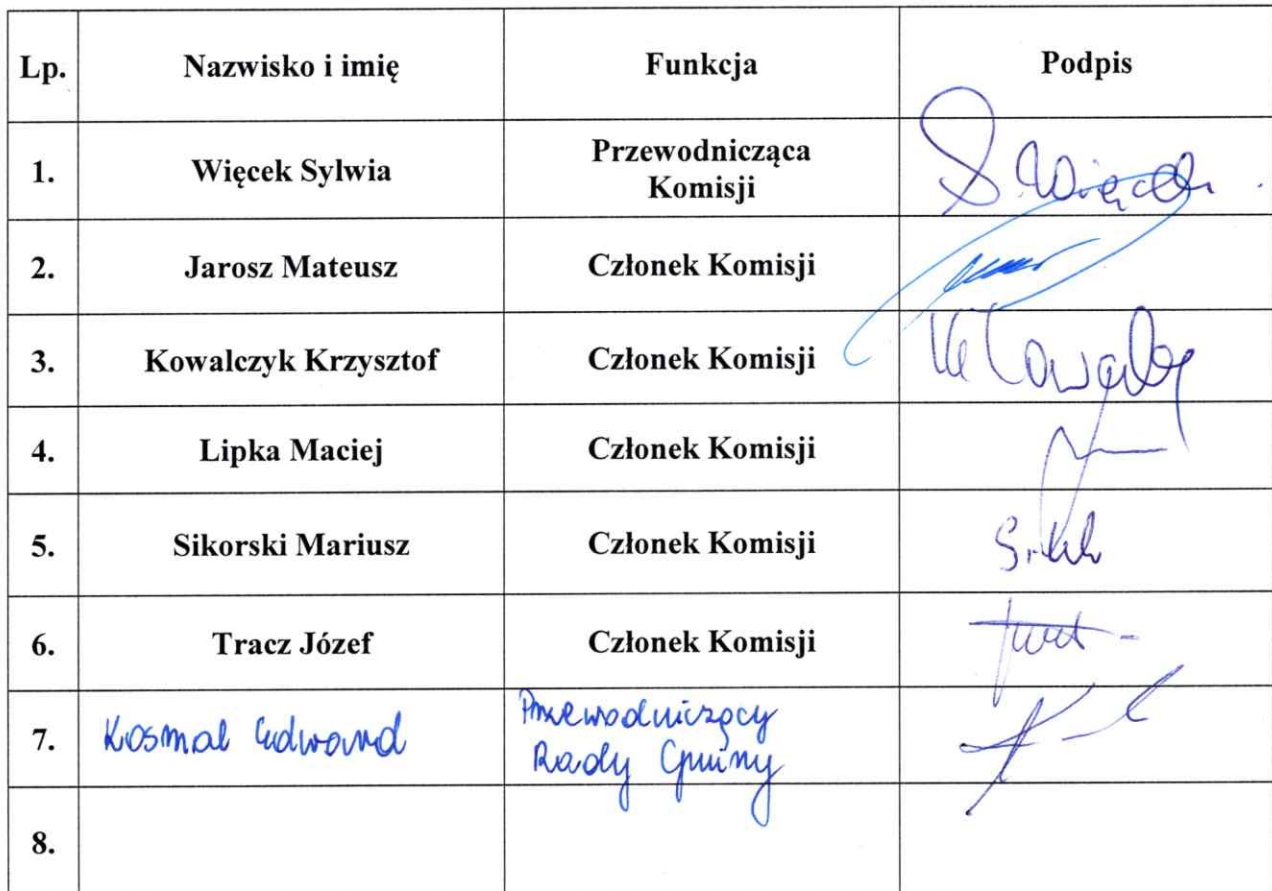 Lp. Nazwisko i imię Funkcja Podpis
1. Więcek Sylwia Przewodnicząca
Komisji S. Więcek
2. Jarosz Mateusz Członek Komisji
3. Kowalczyk Krzysztof Członek Komisji
4. Lipka Maciej Członek Komisji
5. Sikorski Mariusz Członek Komisji
6. Tracz Józef Członek Komisji
7. Kosmal Edward Przewodniczący
Rady Gminy
8.